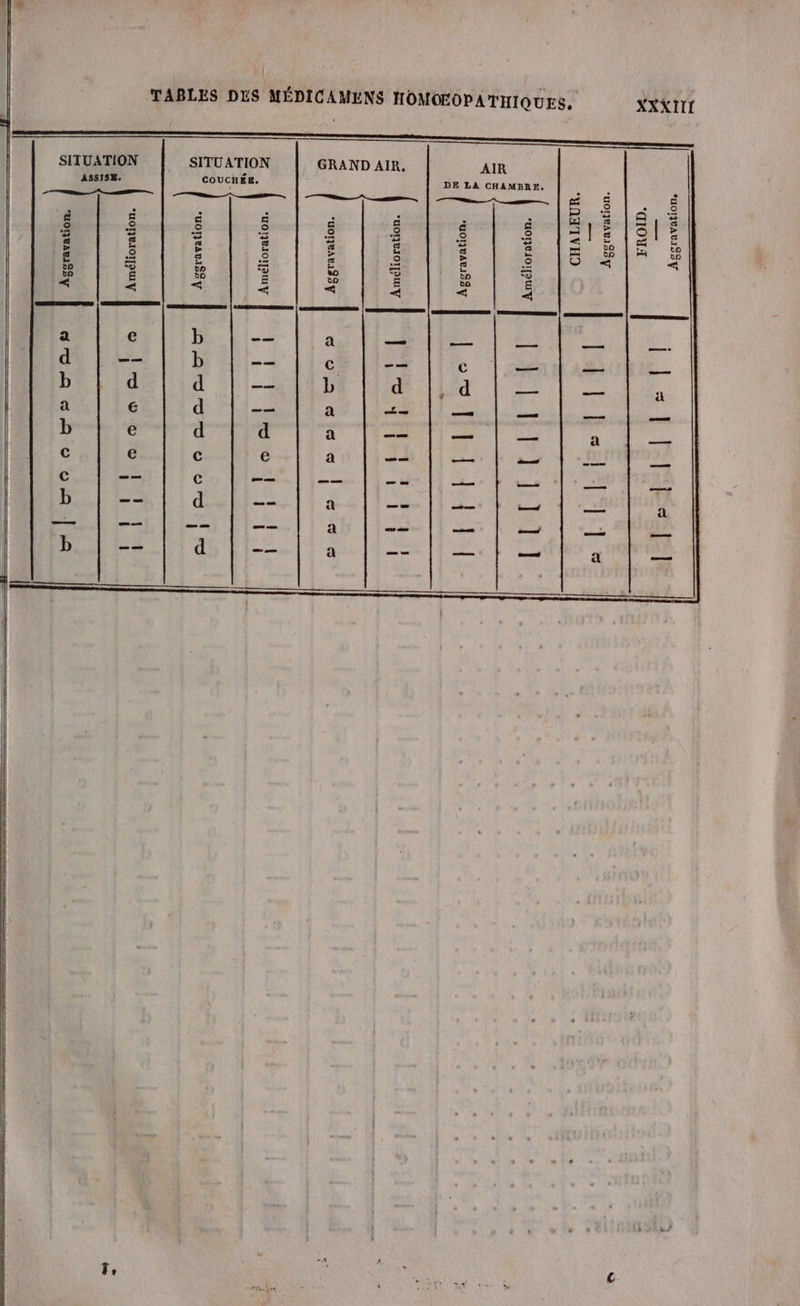 TABLES DES MÉDICAMENS HOMOEOPATHIQUES. XXXIII
SITUATION ASSISE. SITUATION COUCHÉE. GRAND AIR. AIR DE LA CHAMBRE. CHALEUR. — Aggravation. FROID. — Aggravation.
Aggravation. Amélioration. Aggravation. Amélioration. Aggravation. Amélioration. Aggravation. Amélioration.
a e b -- a -- -- -- -- --
d -- b -- c -- c -- -- --
b d d -- b d d -- -- a
a e d -- a -- -- -- -- --
b e d d a -- -- -- a --
c e c e a -- -- -- -- --
c -- c -- -- -- -- -- -- --
b -- d -- a -- -- -- -- a
-- -- -- -- a -- -- -- -- --
b -- d -- a -- -- -- a --
I. c